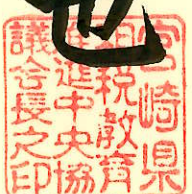 宮崎県
租税教育
推進中央協
議会長之印